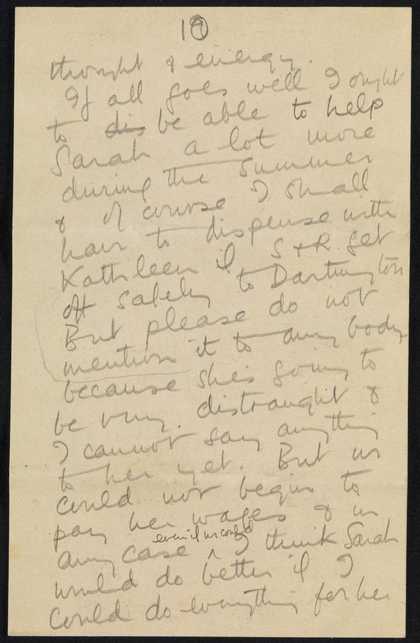 19
thought & energy.
If all goes well I ought
to dis be able to help
Sarah a lot more
during the summer
& of course I shall
have to dispense with
Kathleen if S & R. get
off safely to Dartington
But please do not
mention it to any body
because she's going to
be very distraught &
I cannot say anything
to her yet. But we
could not begin to
pay her wages & in
any case even if we could I think Sarah
would do better if I
could do everything for her